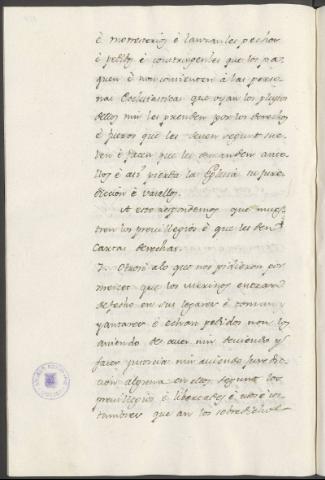 è monesterios è lanzanles pechos
è pedidos è constringenles que los pa-
guen è non consienten à las perso-
nas Eclesiasticas que oyan los pleytos
dellos nin les prenden por los derechos
è fueros que les deven segunt sue-
len è facen que les demanden ante
ellos è asi pierde la Eglesia su jure-
dicción è vasallos.
A esto respondemos que mues-
tren los previllegios è que les den
Cartas derechas.
7. Otrosi alo que nos pidieron por
merced que los merinos entran
de fecho en sus logares è toman y
yantares è echan pedidos non los
aviendo de aver nin deviendo y
facer justicia nin aviendo juredic-
cion alguna en ellos segunt los
previllegios è libertades è usos è cos-
tumbres que an los sobredichos